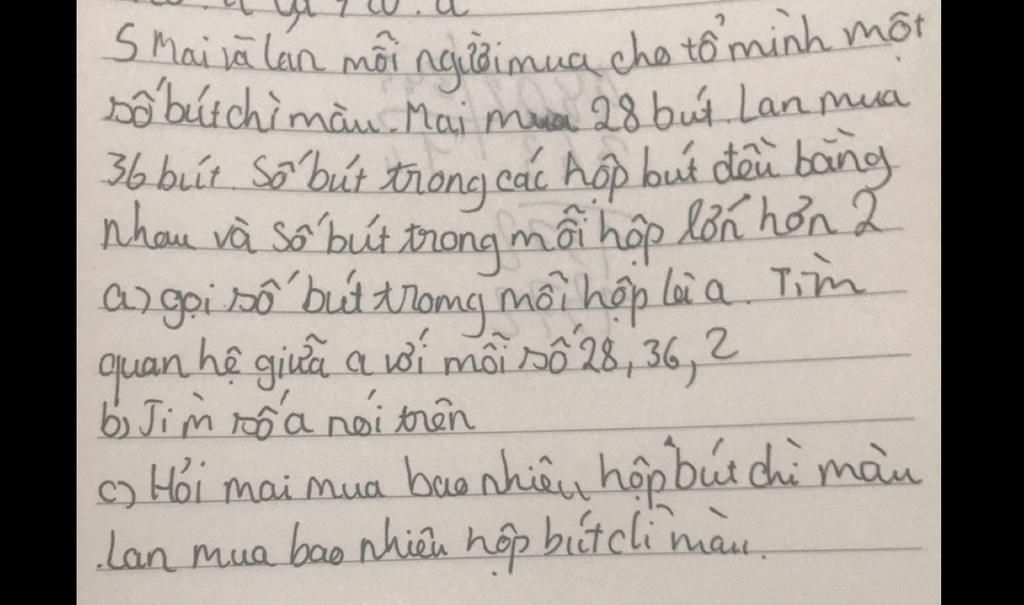 5 Mai và lan mỗi người mua cho tổ mình một
số bút chì màu. Mai mua 28 bút. Lan mua
36 bút. Số bút trong các hộp bút đều bằng
nhau và số bút trong mỗi hộp lớn hơn 2
a) gọi số bút trong mỗi hộp là a. Tìm
quan hệ giữa a với mỗi số 28, 36, 2
b) Tìm số a nói trên
c) Hỏi mai mua bao nhiêu hộp bút chì màu
Lan mua bao nhiêu hộp bút chì màu.